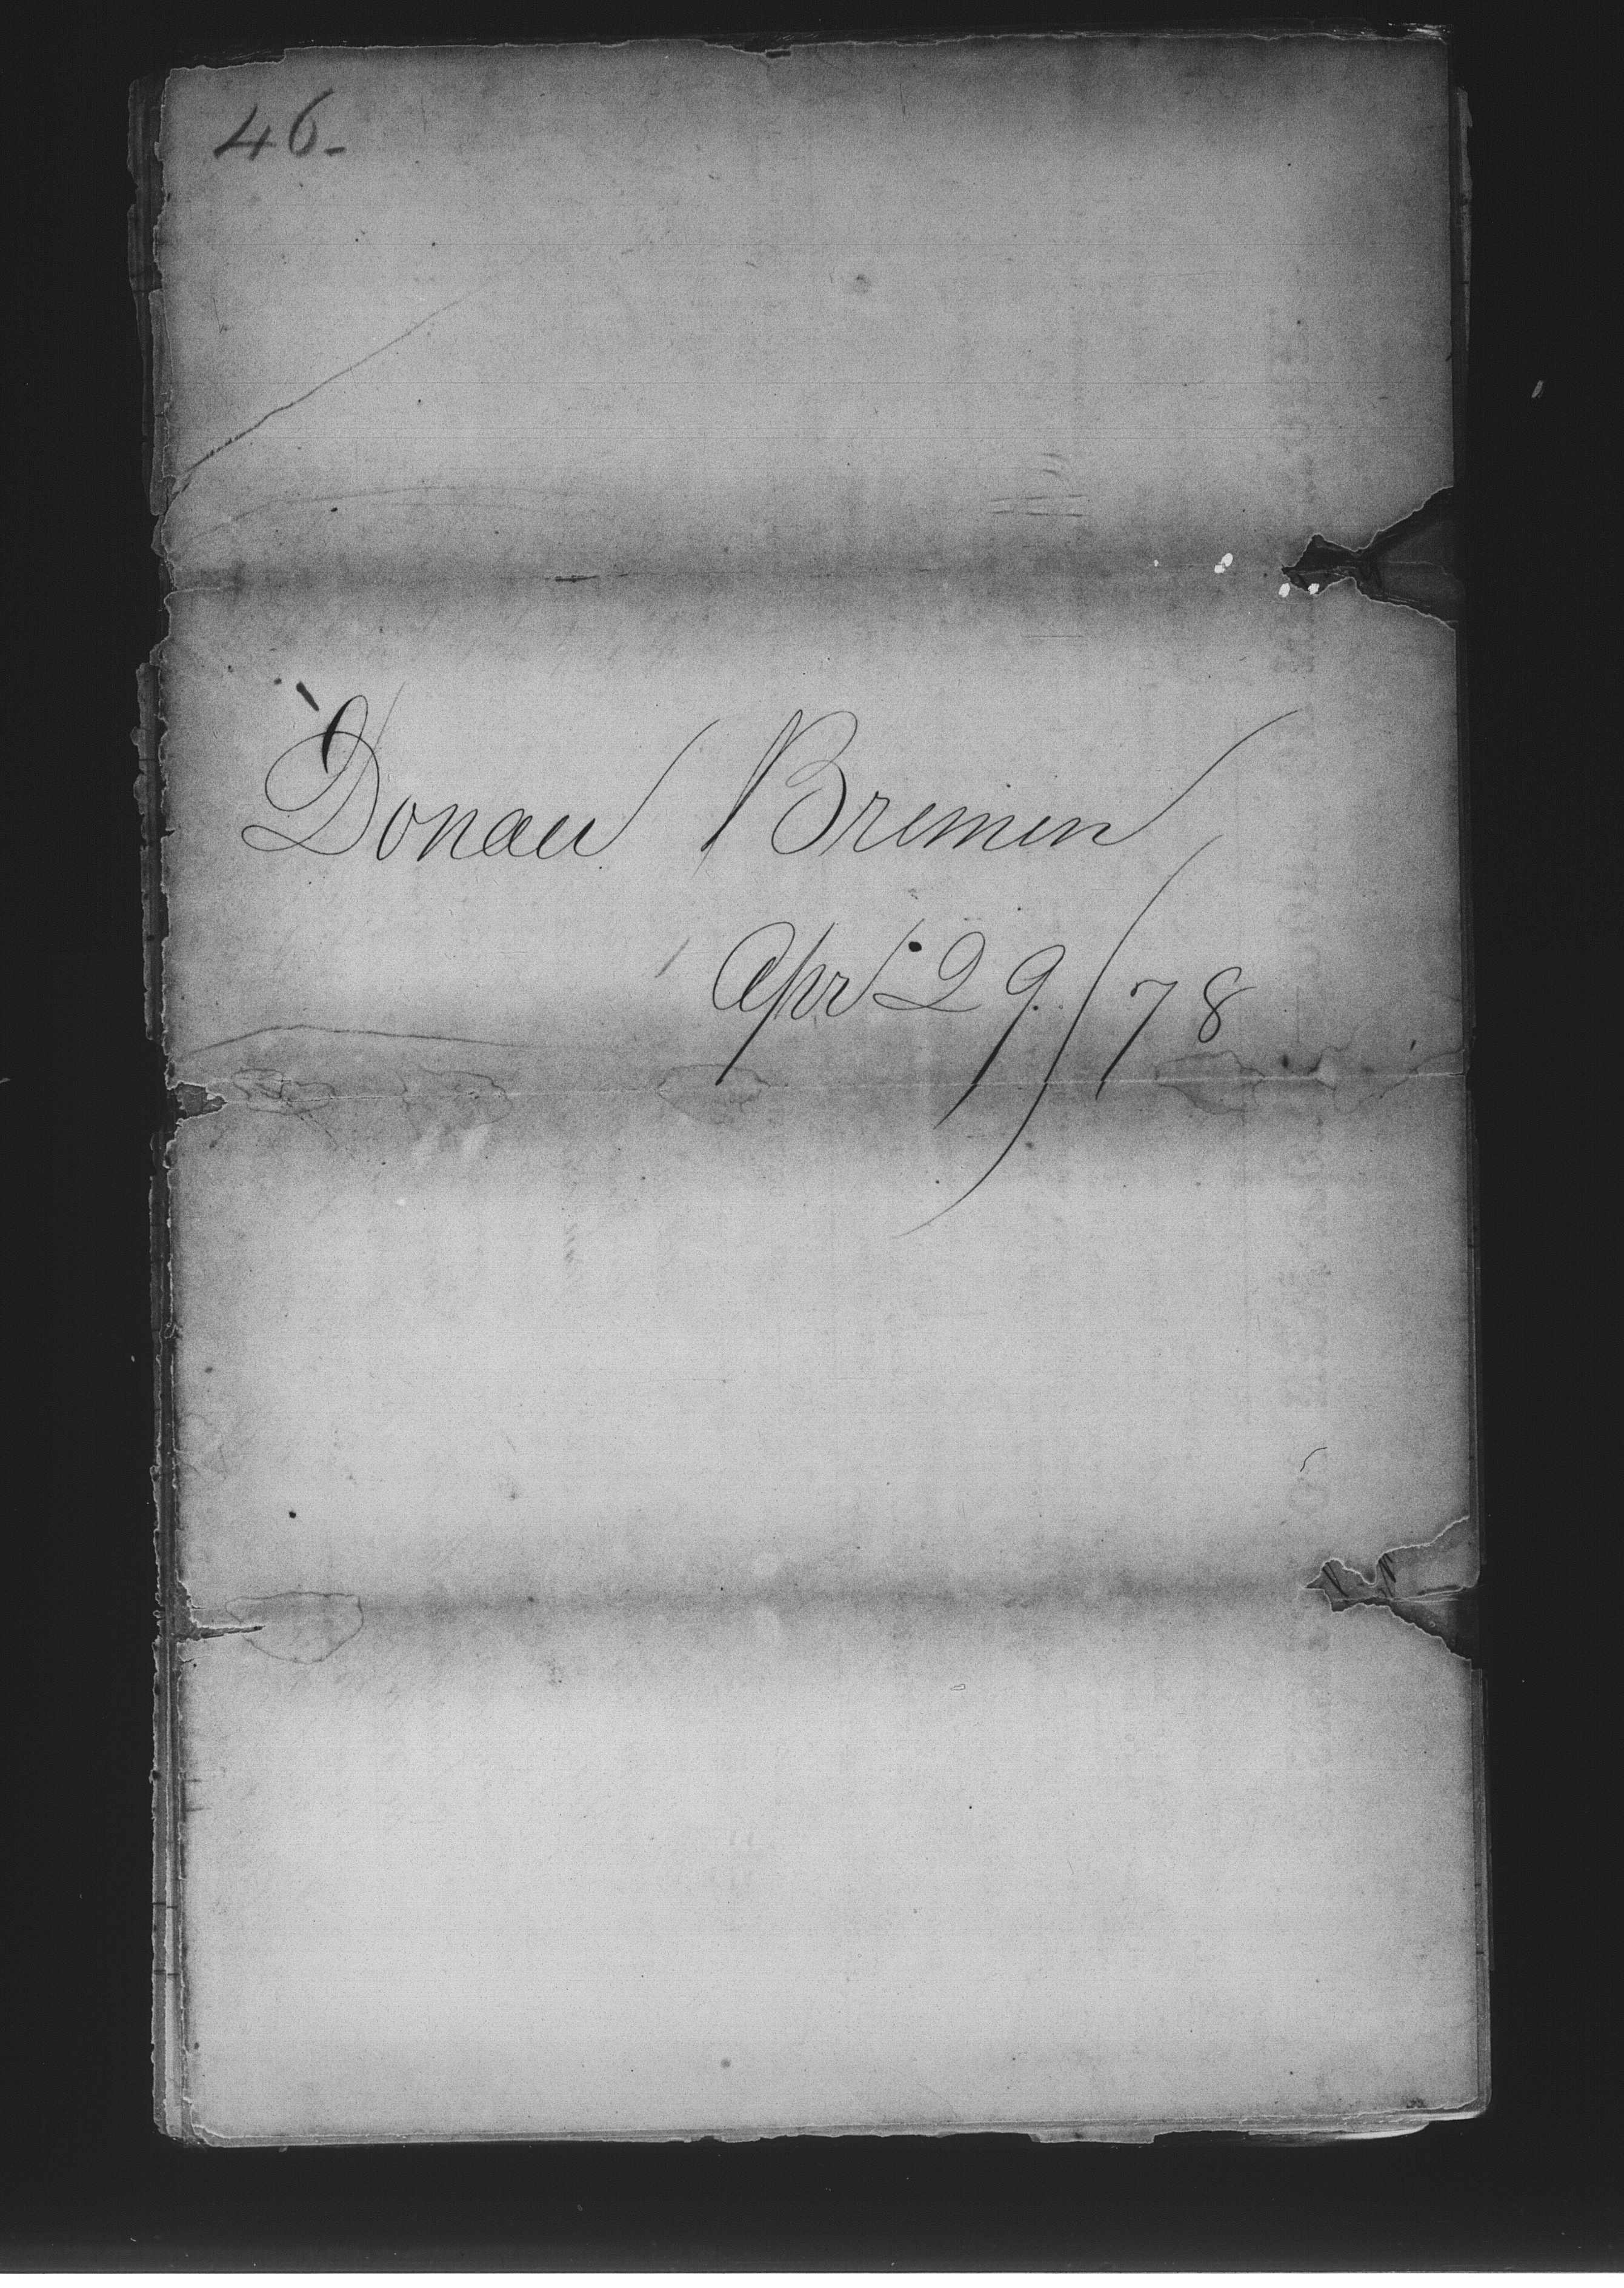 46-
Donau Bremen
Apr 29/78